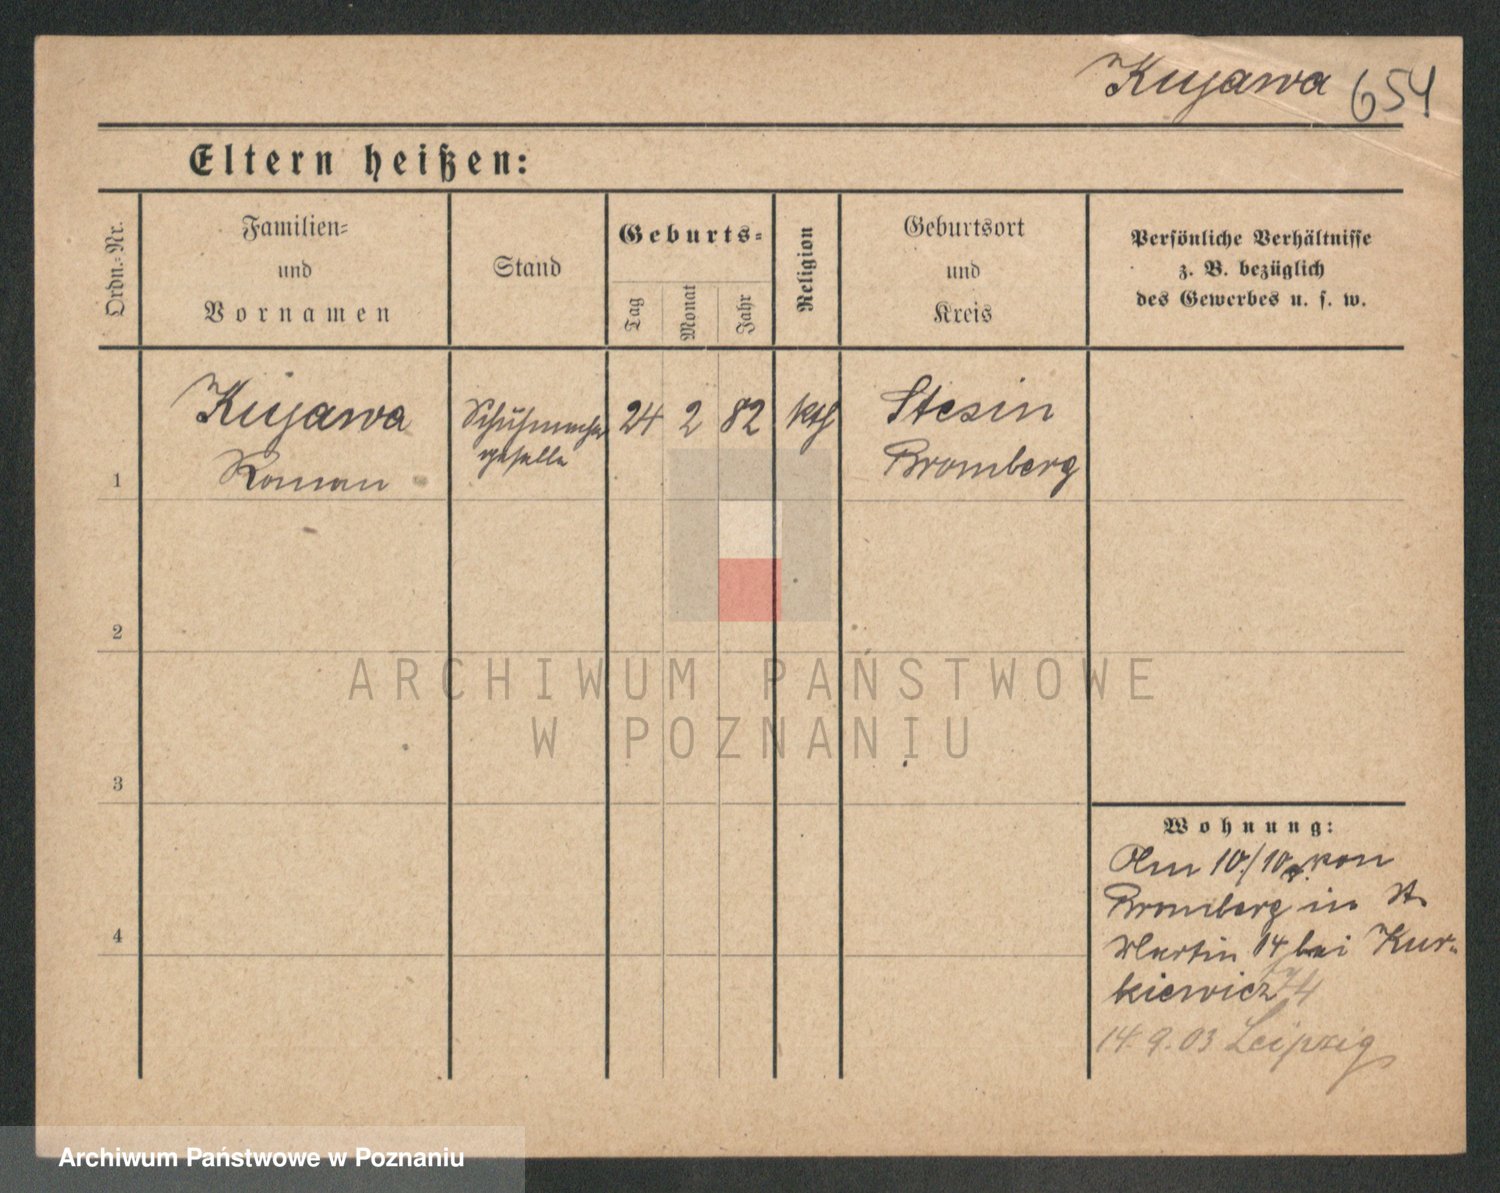 Kujawa 654
Eltern heißen:
Ordn.=Nr.
Familien=
und
Vornamen
Stand
Geburts=
Tag
Monat
Jahr
Religion
Geburtsort
und
Kreis
Persönliche Verhältnisse
z. B. bezüglich
des Gewerbes u. s. w.
1
Kujawa
Roman
Schuhmacher
geselle
24 2 82
kth
Stesin
Bromberg
2
3
4
Wohnung:
10/10 von
Bromberg in St.
Martin 14 bei Kur-
kiewicz
14.9.03 Leipzig
ARCHIWUM PAŃSTWOWE
W POZNANIU
Archiwum Państwowe w Poznaniu